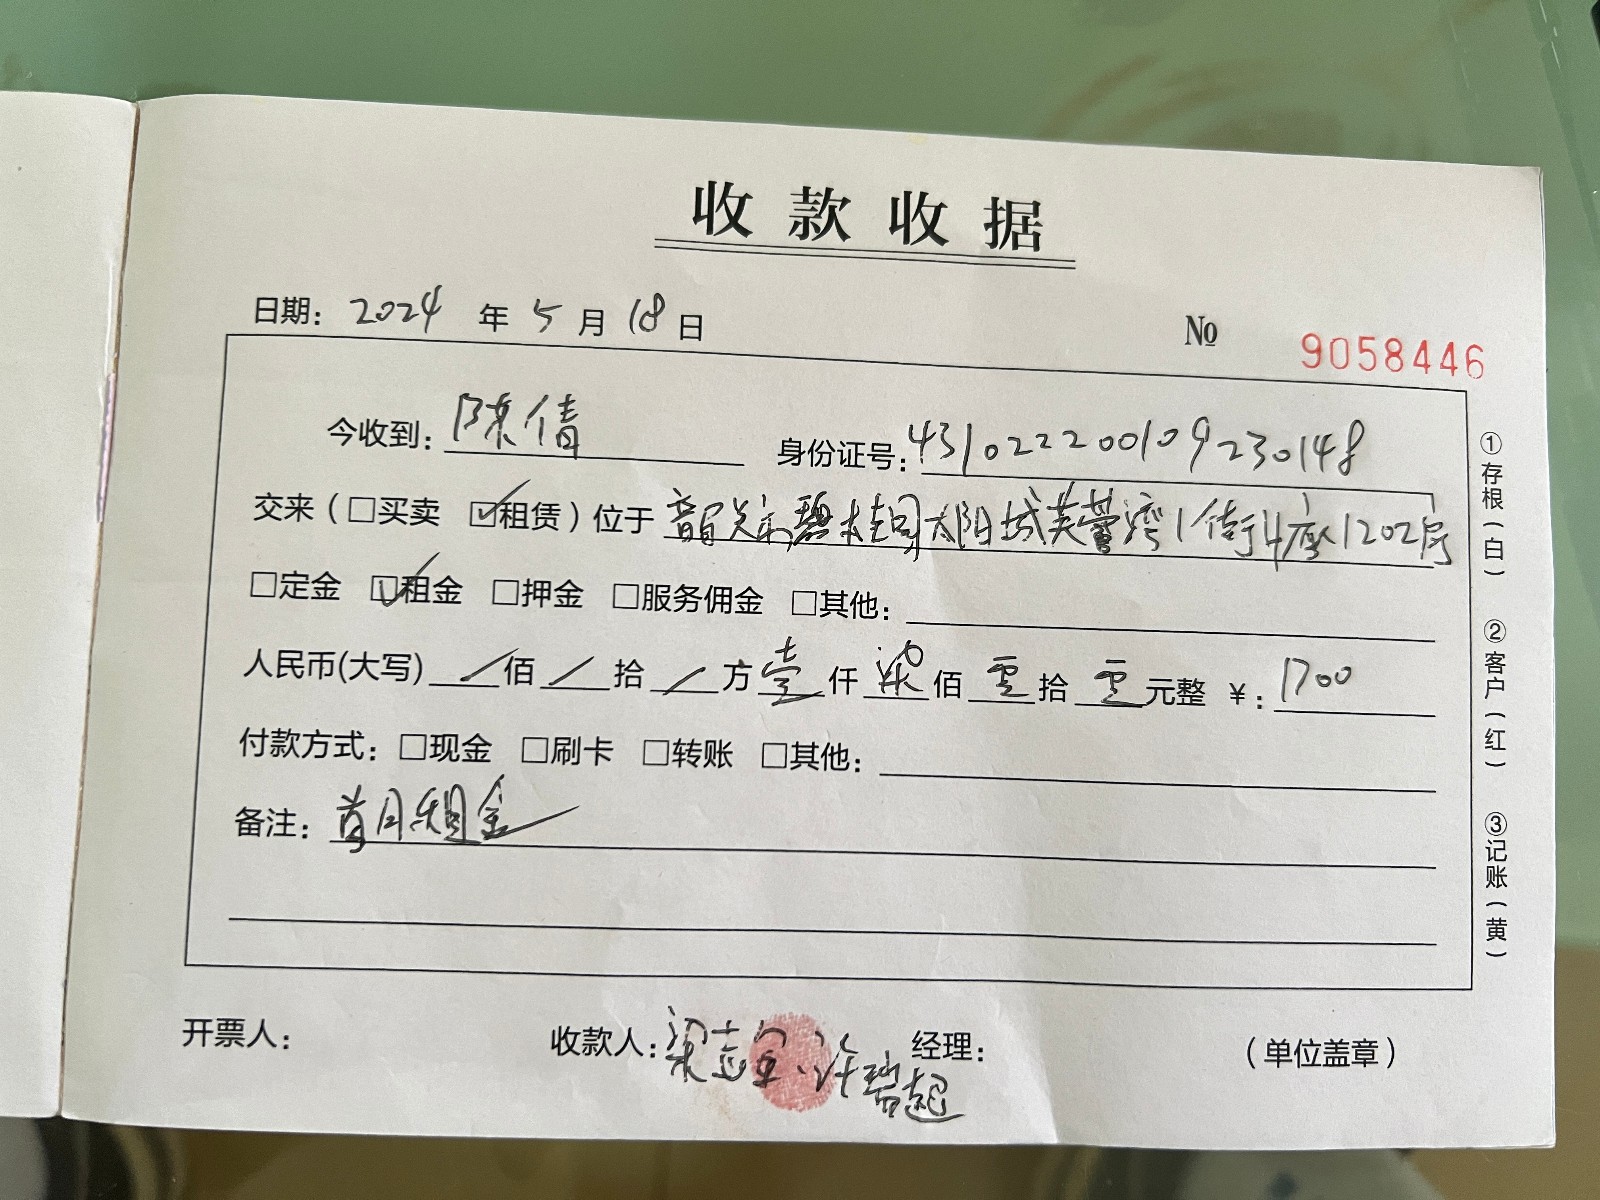 收款收据
日期: 2024 年 5 月 18 日 № 9058446
今收到: 陈倩 身份证号: 431022200109230148
交来(□买卖 ☑租赁)位于 韶关市碧桂园太阳城芙蓉湾1街4座1202房
□定金 ☑租金 □押金 □服务佣金 □其他:
人民币(大写) / 佰 / 拾 / 万 壹 仟 柒 佰 零 拾 零 元整 ¥: 1700
付款方式: □现金 □刷卡 □转账 □其他:
备注: 首月租金
开票人: 收款人: 梁志 许瑞起 经理: (单位盖章)
①存根(白) ②客户(红) ③记账(黄)